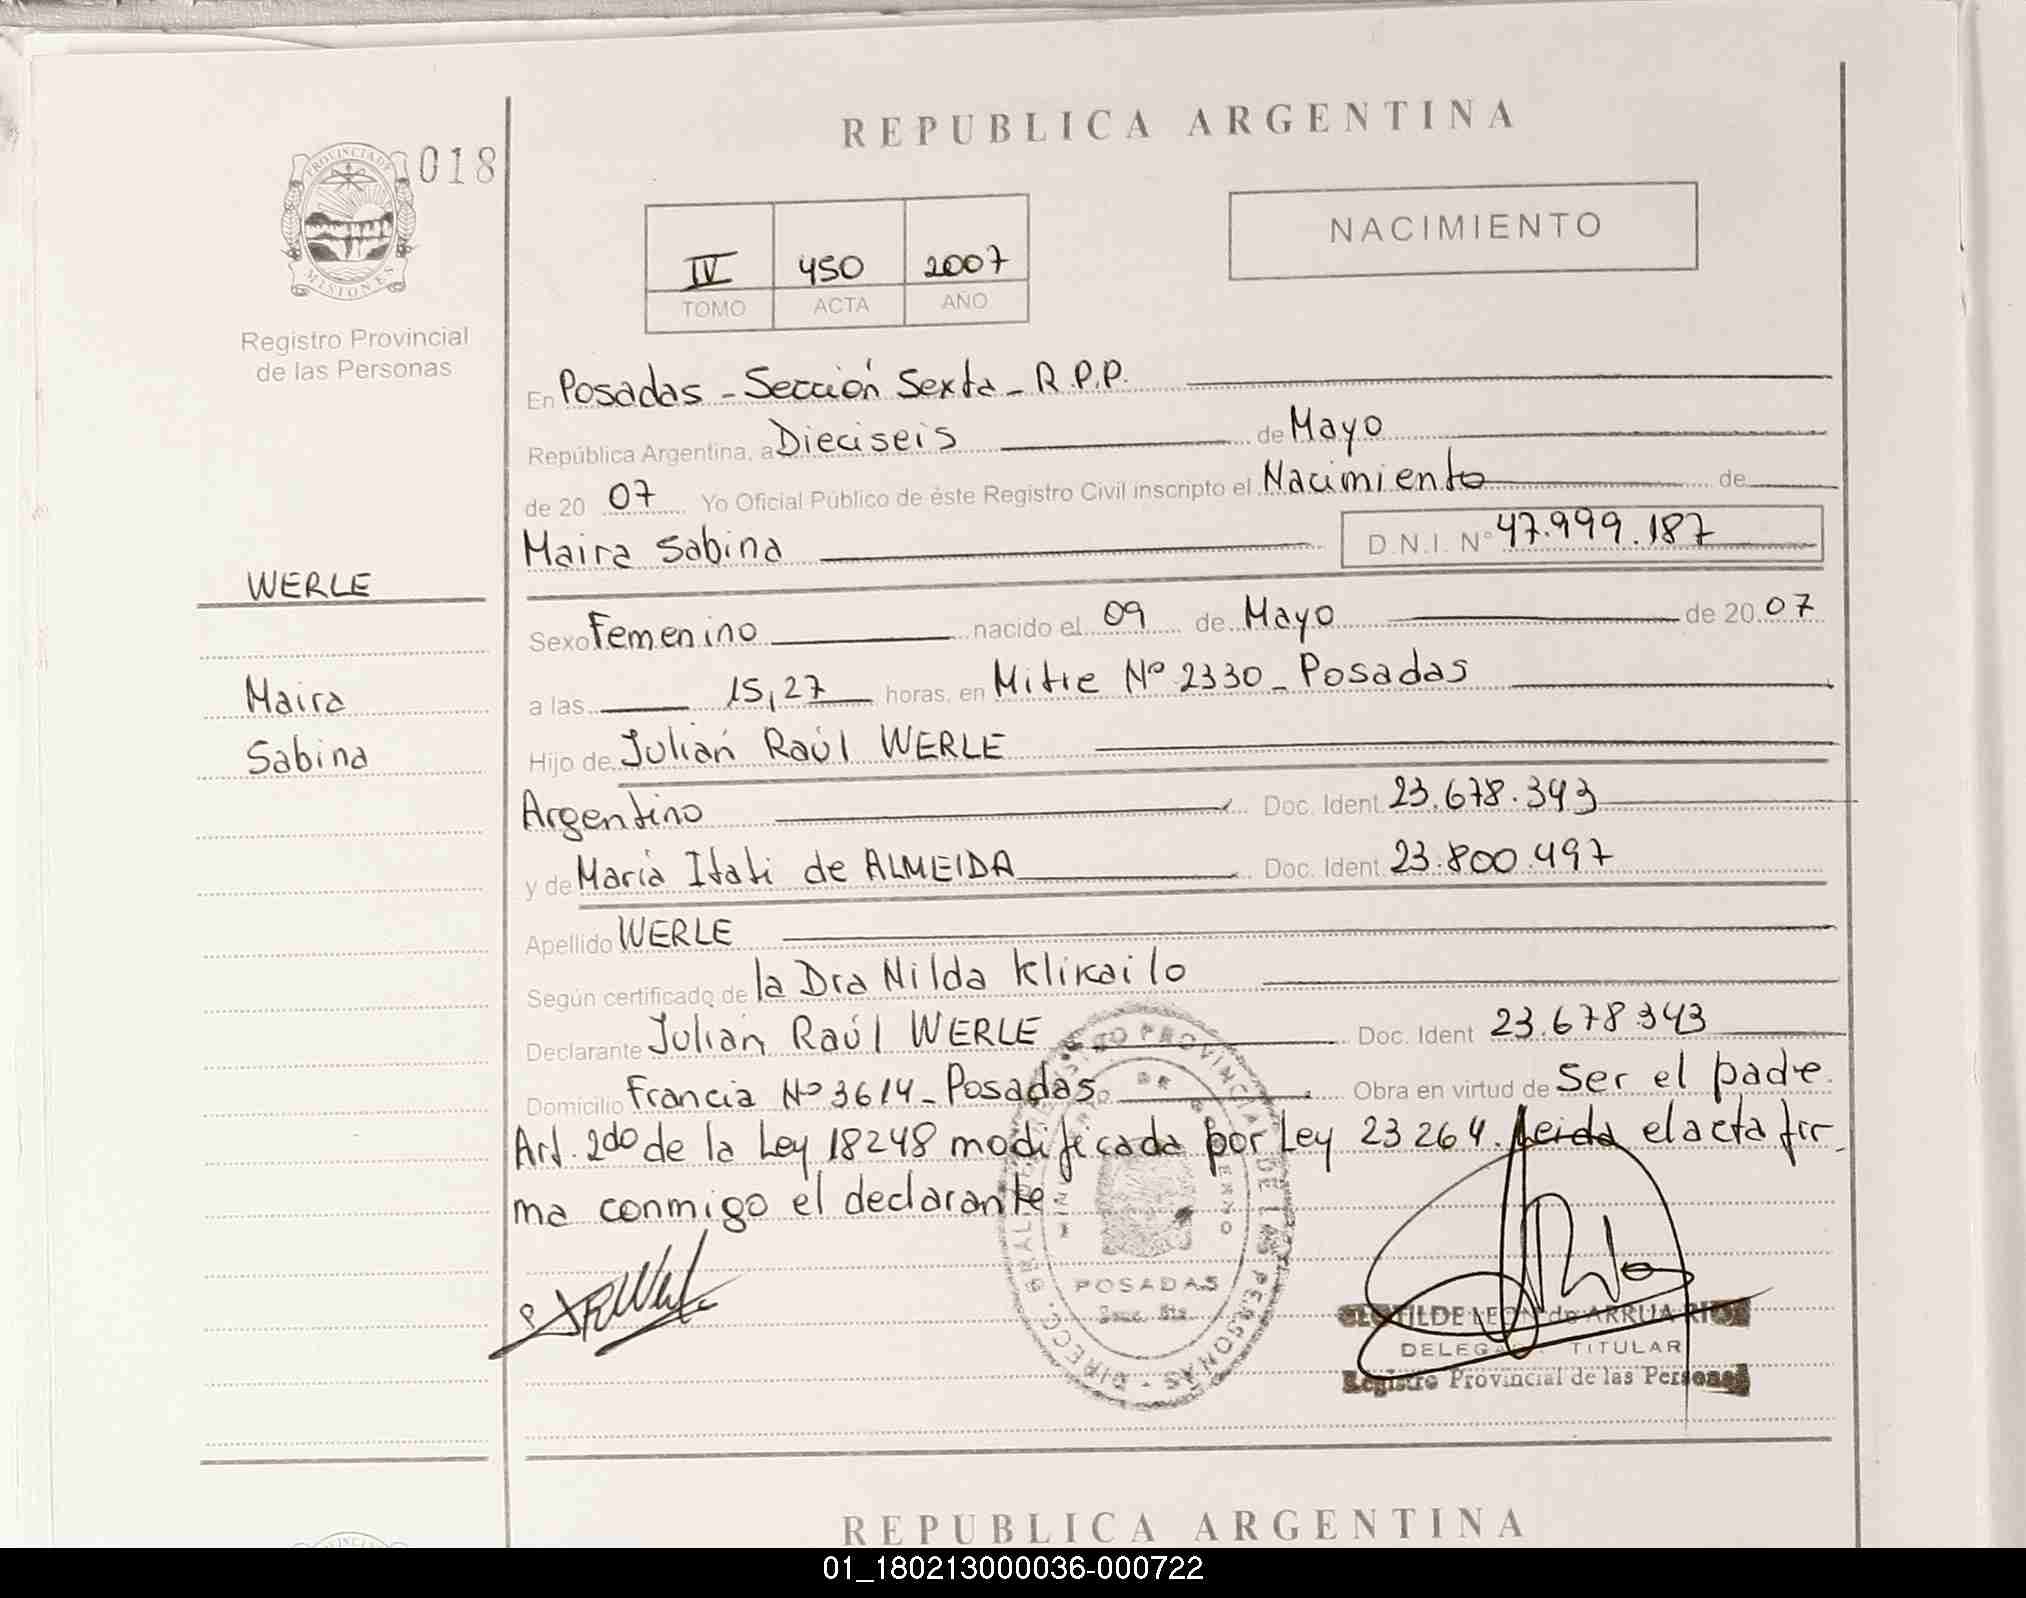 REPUBLICA ARGENTINA
PROVINCIA DE
MISIONES
018
Registro Provincial
de las Personas
IV 450 2007
TOMO ACTA AÑO
NACIMIENTO
En Posadas - Sección Sexta - R.P.P.
República Argentina, a Dieciseis de Mayo
de 20 07 Yo Oficial Público de éste Registro Civil inscripto el Nacimiento de
Maira Sabina D.N.I. Nº 47.999.187
WERLE
Maira
Sabina
Sexo Femenino nacido el 09 de Mayo de 20 07
a las 15,27 horas, en Mitre Nº 2330 - Posadas
Hijo de Julián Raúl WERLE
Argentino Doc. Ident. 23.678.343
y de María Itati de ALMEIDA Doc. Ident. 23.800.497
Apellido WERLE
Según certificado de la Dra Nilda Klikailo
Declarante Julián Raúl WERLE Doc. Ident 23.678.343
Domicilio Francia Nº 3614 - Posadas Obra en virtud de Ser el padre.
Art. 2do de la Ley 18248 modificada por Ley 23264. Leida el acta fir
ma conmigo el declarante
PROVINCIAL DE LAS PERSONAS
POSADAS
CLOTILDE LEON de ARRUA RIOS
DELEGADA TITULAR
Registro Provincial de las Personas
REPUBLICA ARGENTINA
01_180213000036-000722